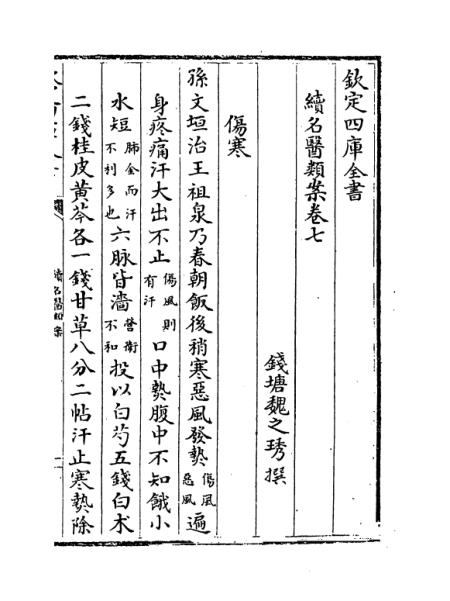 欽定四庫全書
續名醫類案卷七
錢塘魏之琇撰
傷寒
孫文垣治王祖泉乃春朝飯後稍寒惡風發熱傷風惡風遍
身疼痛汗大出不止傷風則有汗口中熱腹中不知餓小
水短肺金而汗不利多也六脉皆濇營衛不和投以白芍五錢白术
二錢桂皮黃芩各一錢甘草八分二帖汗止寒熱除
續名醫類案